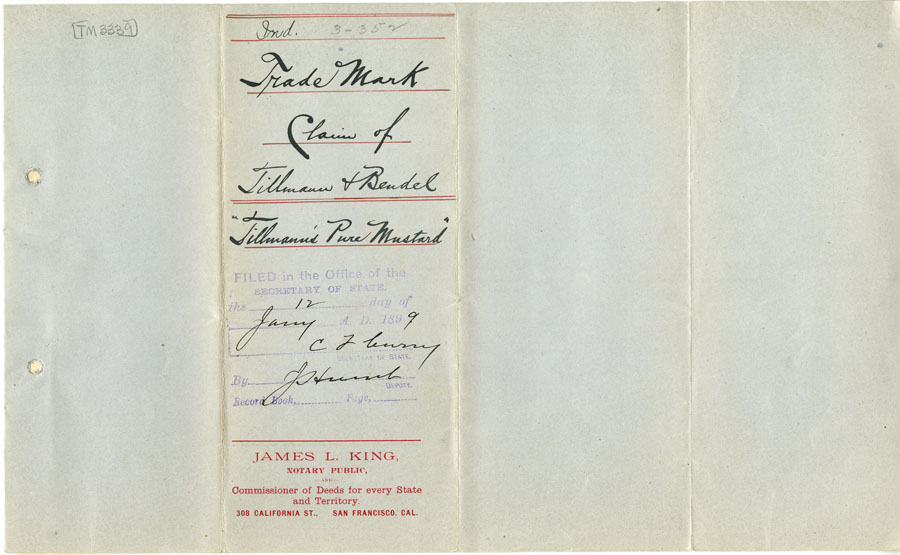 [TM3339]
Ind. 3-352
Trade Mark
Claim of
Tillmann & Bendel
"Tillmann's Pure Mustard"
FILED in the Office of the
SECRETARY OF STATE.
the 12 day of
Jany A. D. 1899
C F Curry
SECRETARY OF STATE.
By J Humb
DEPUTY.
Record Book, Page,
JAMES L. KING,
NOTARY PUBLIC,
—AND—
Commissioner of Deeds for every State
and Territory.
308 CALIFORNIA ST., SAN FRANCISCO, CAL.